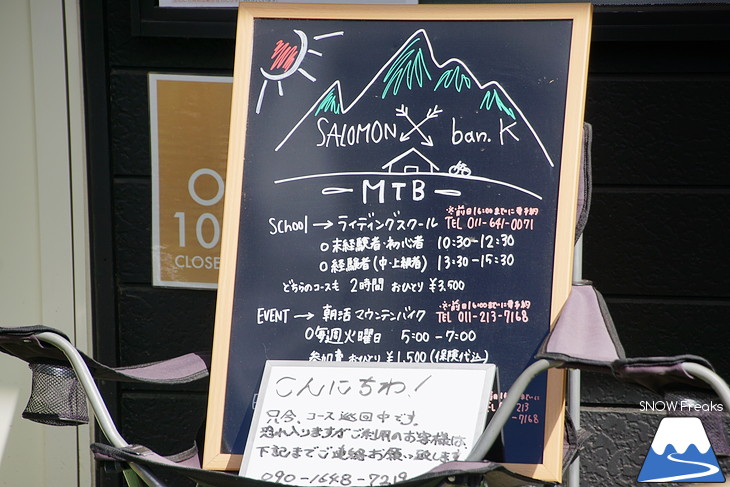 SALOMON ban.K
MTB
School → ライディングスクール
※前日16:00までに要予約
TEL 011-641-0071
○未経験者・初心者 10:30-12:30
○経験者(中・上級者) 13:30-15:30
どちらのコースも 2時間 おひとり ¥3,500
EVENT → 朝活マウンテンバイク
※前日16:00までに要予約
TEL 011-213-7168
○毎週火曜日 5:00-7:00
参加費おひとり ¥1,500(保険代込)
213
-7168
こんにちわ!
只今、コース巡回中です。
恐れ入りますがご利用のお客様は、
下記までご連絡お願い致します
090-1648-7219
10
CLOSE
SNOW Freaks